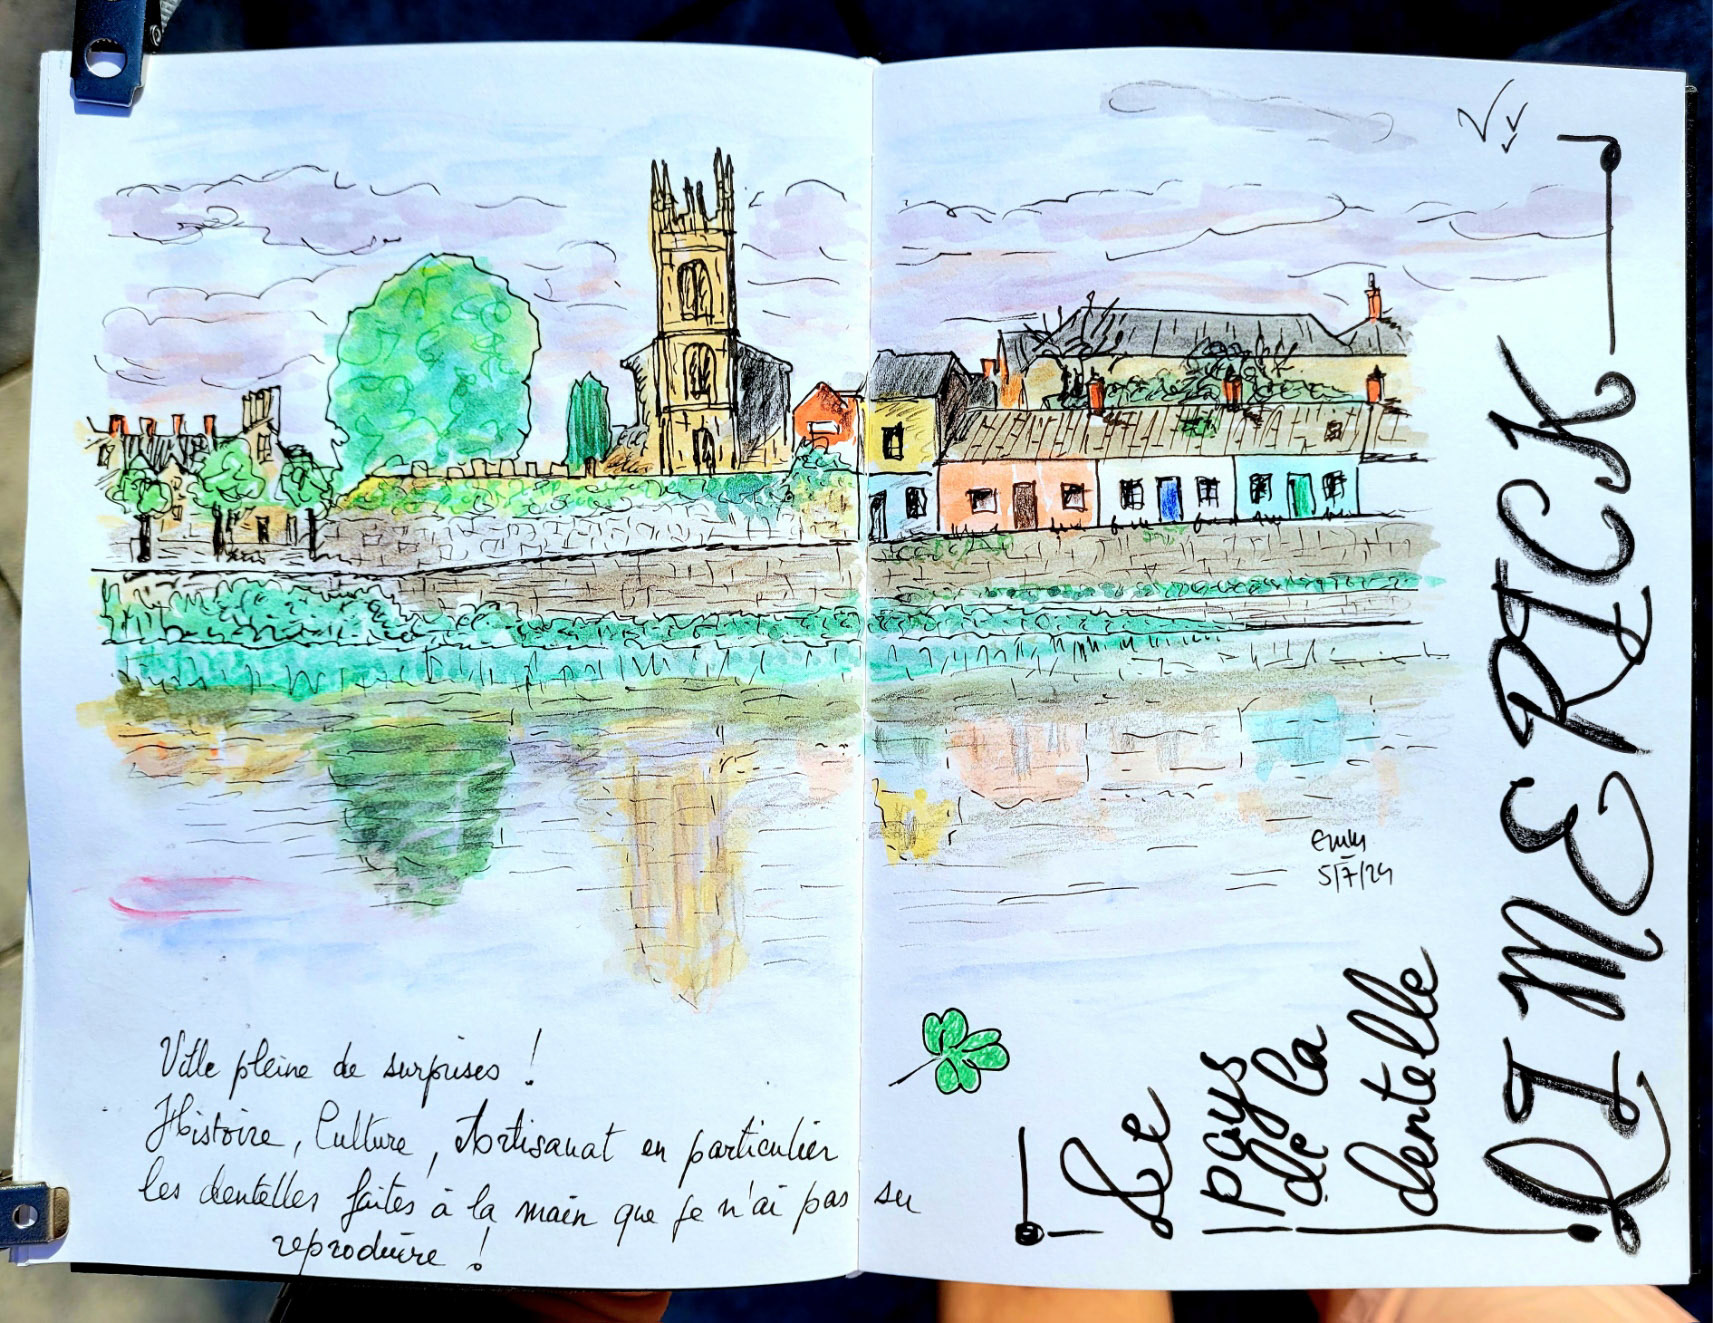 Ville pleine de surprises !
Histoire, Culture, Artisanat en particulier
les dentelles faites à la main que je n'ai pas su
reproduire !
Emly
5/7/24
Le
pays
de la
dentelle
LIMERICK